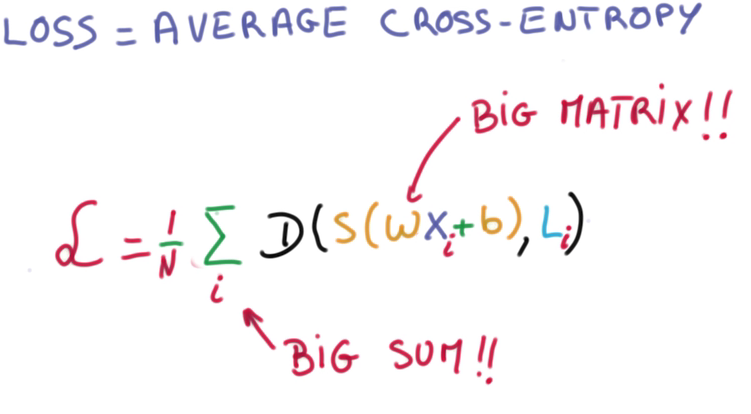 LOSS = AVERAGE CROSS-ENTROPY
BIG MATRIX!!
ℒ = 1/N Σ_i D(S(WX_i+b), L_i)
BIG SUM!!